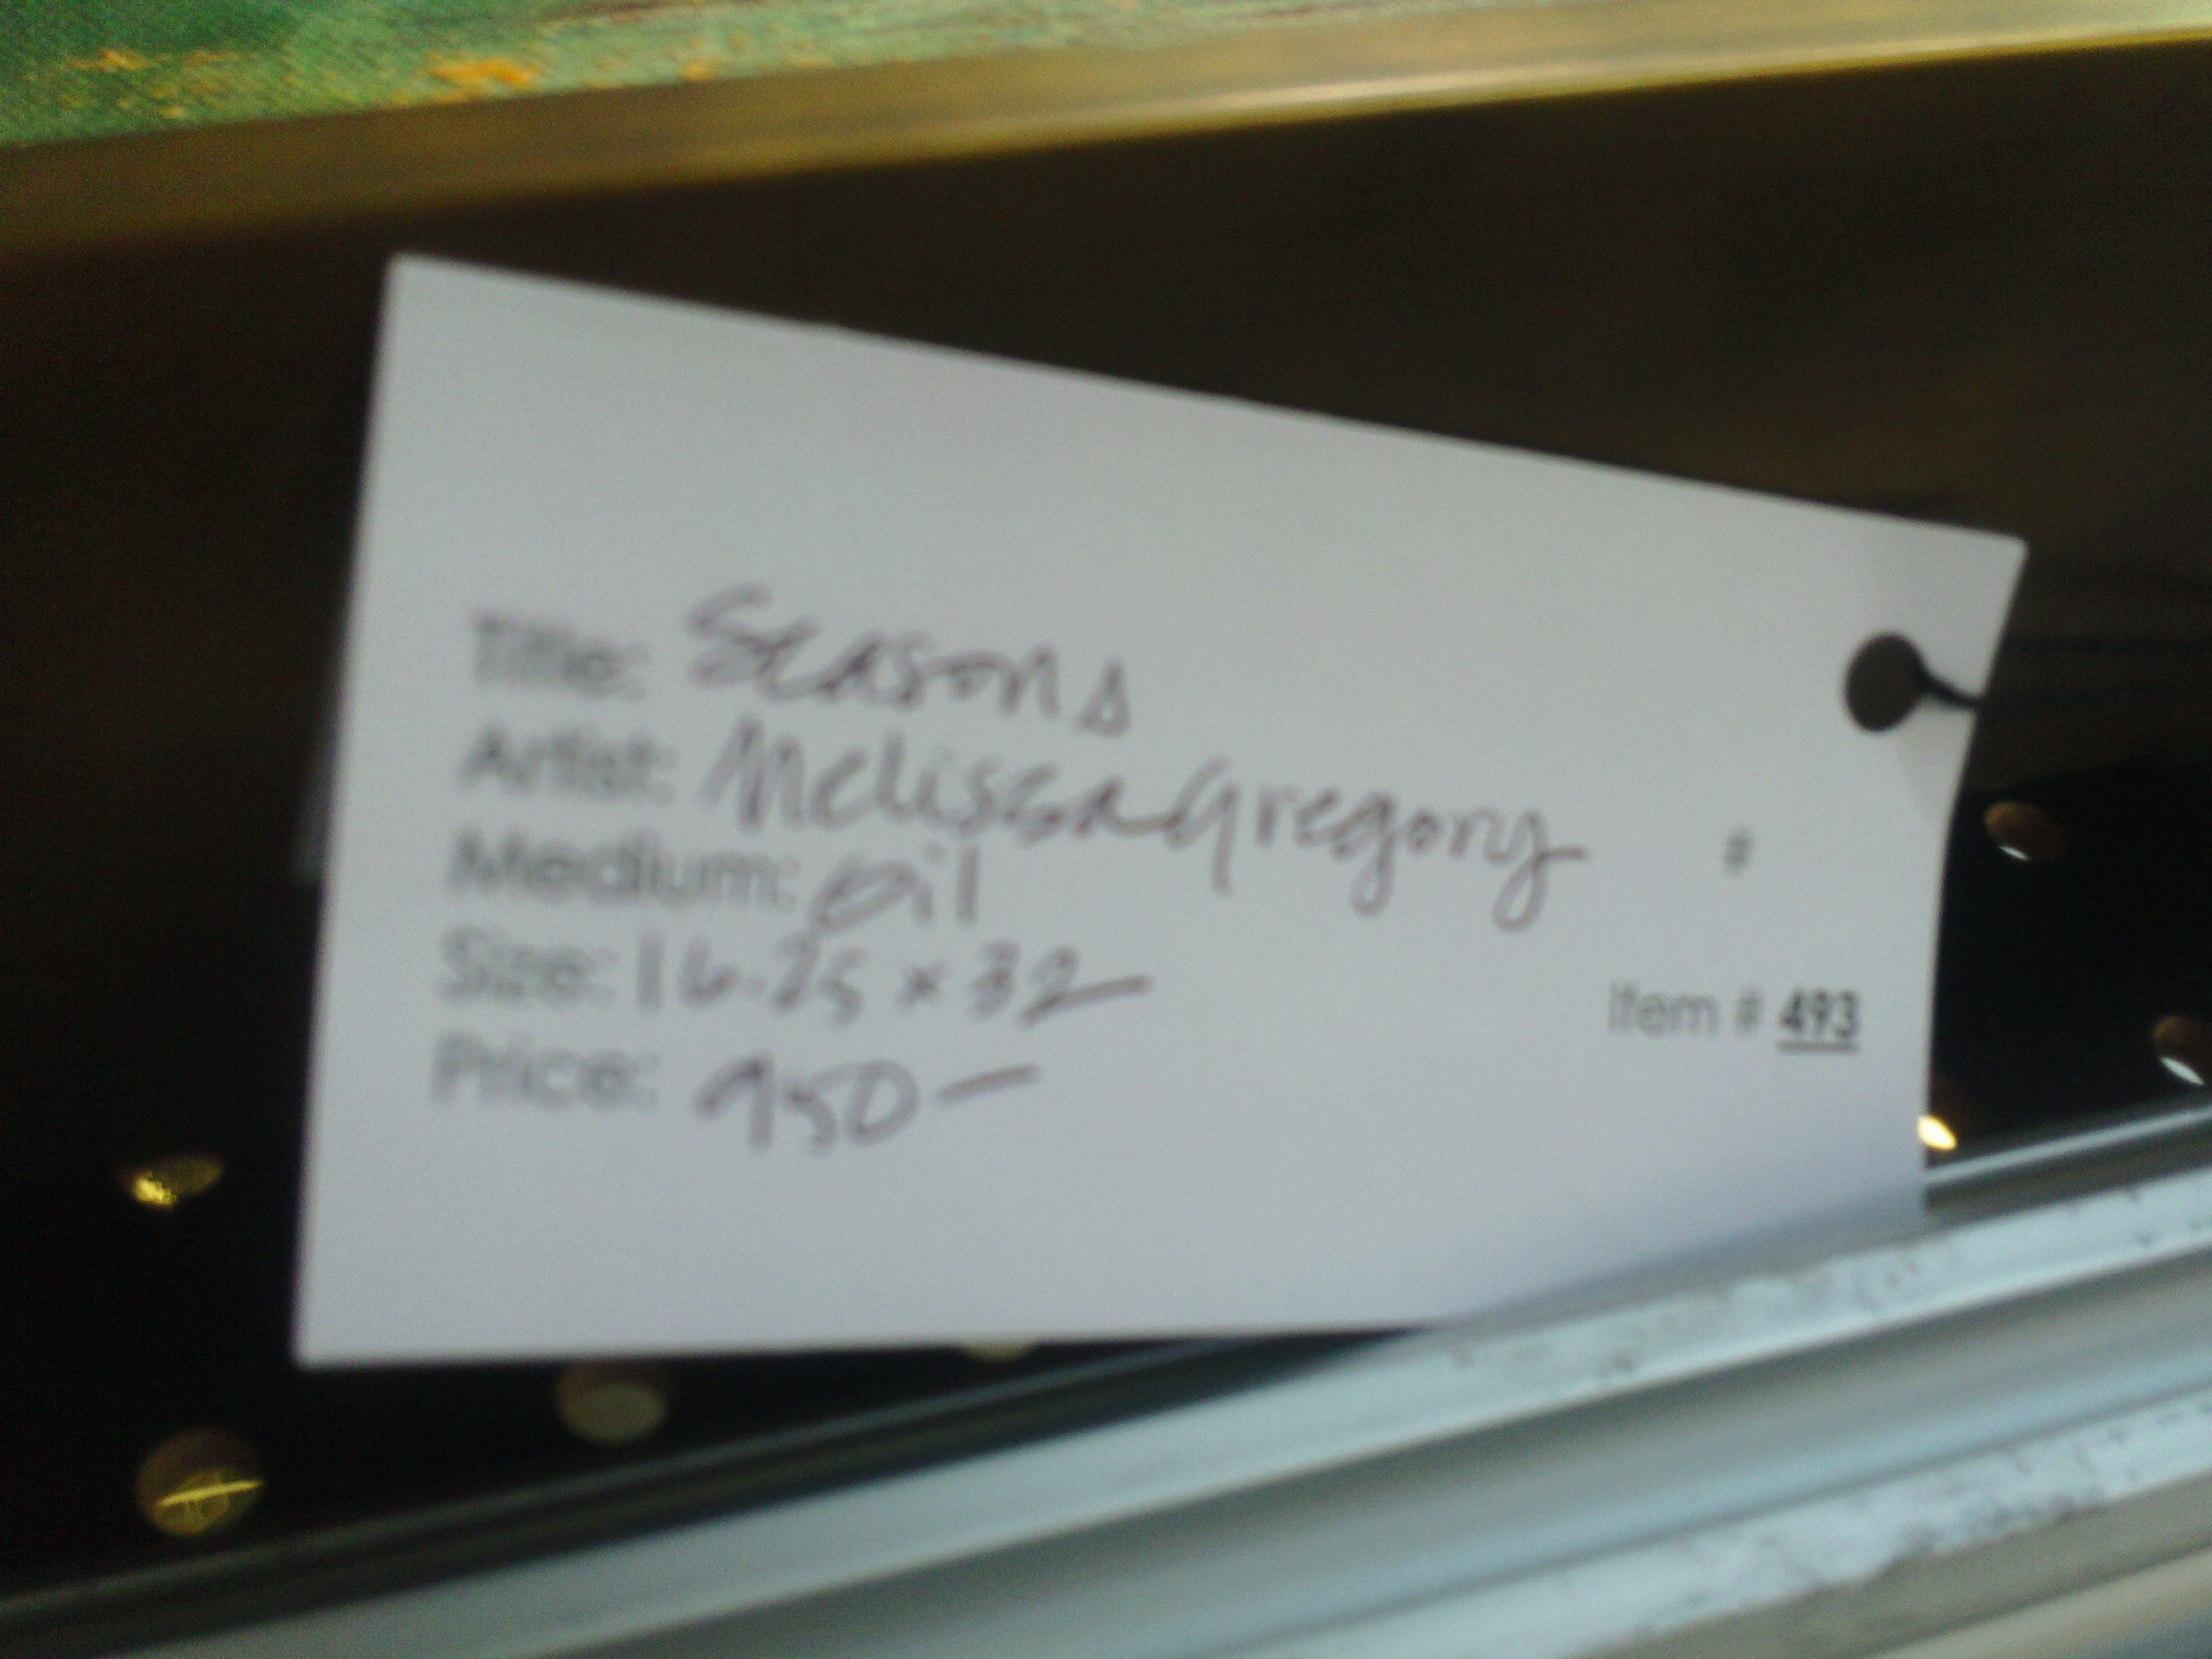 Title: Seasons
Artist: Melissa Gregory
#
Medium: oil
Size: 16.25 x 32
Item # 493
Price: 950-